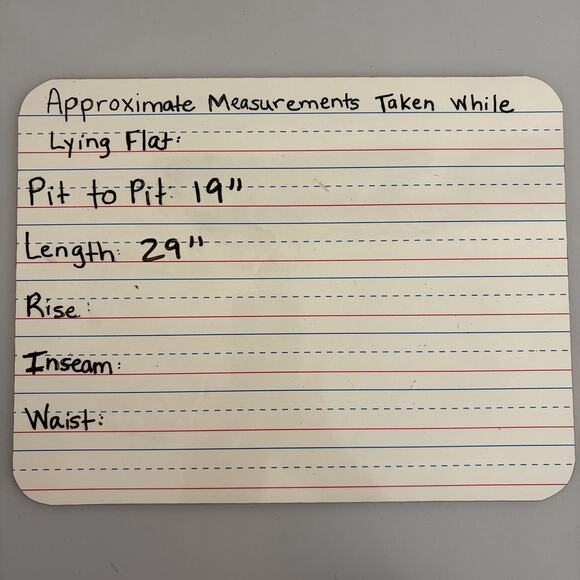 Approximate Measurements Taken While
Lying Flat:
Pit to Pit: 19"
Length: 29"
Rise:
Inseam:
Waist: